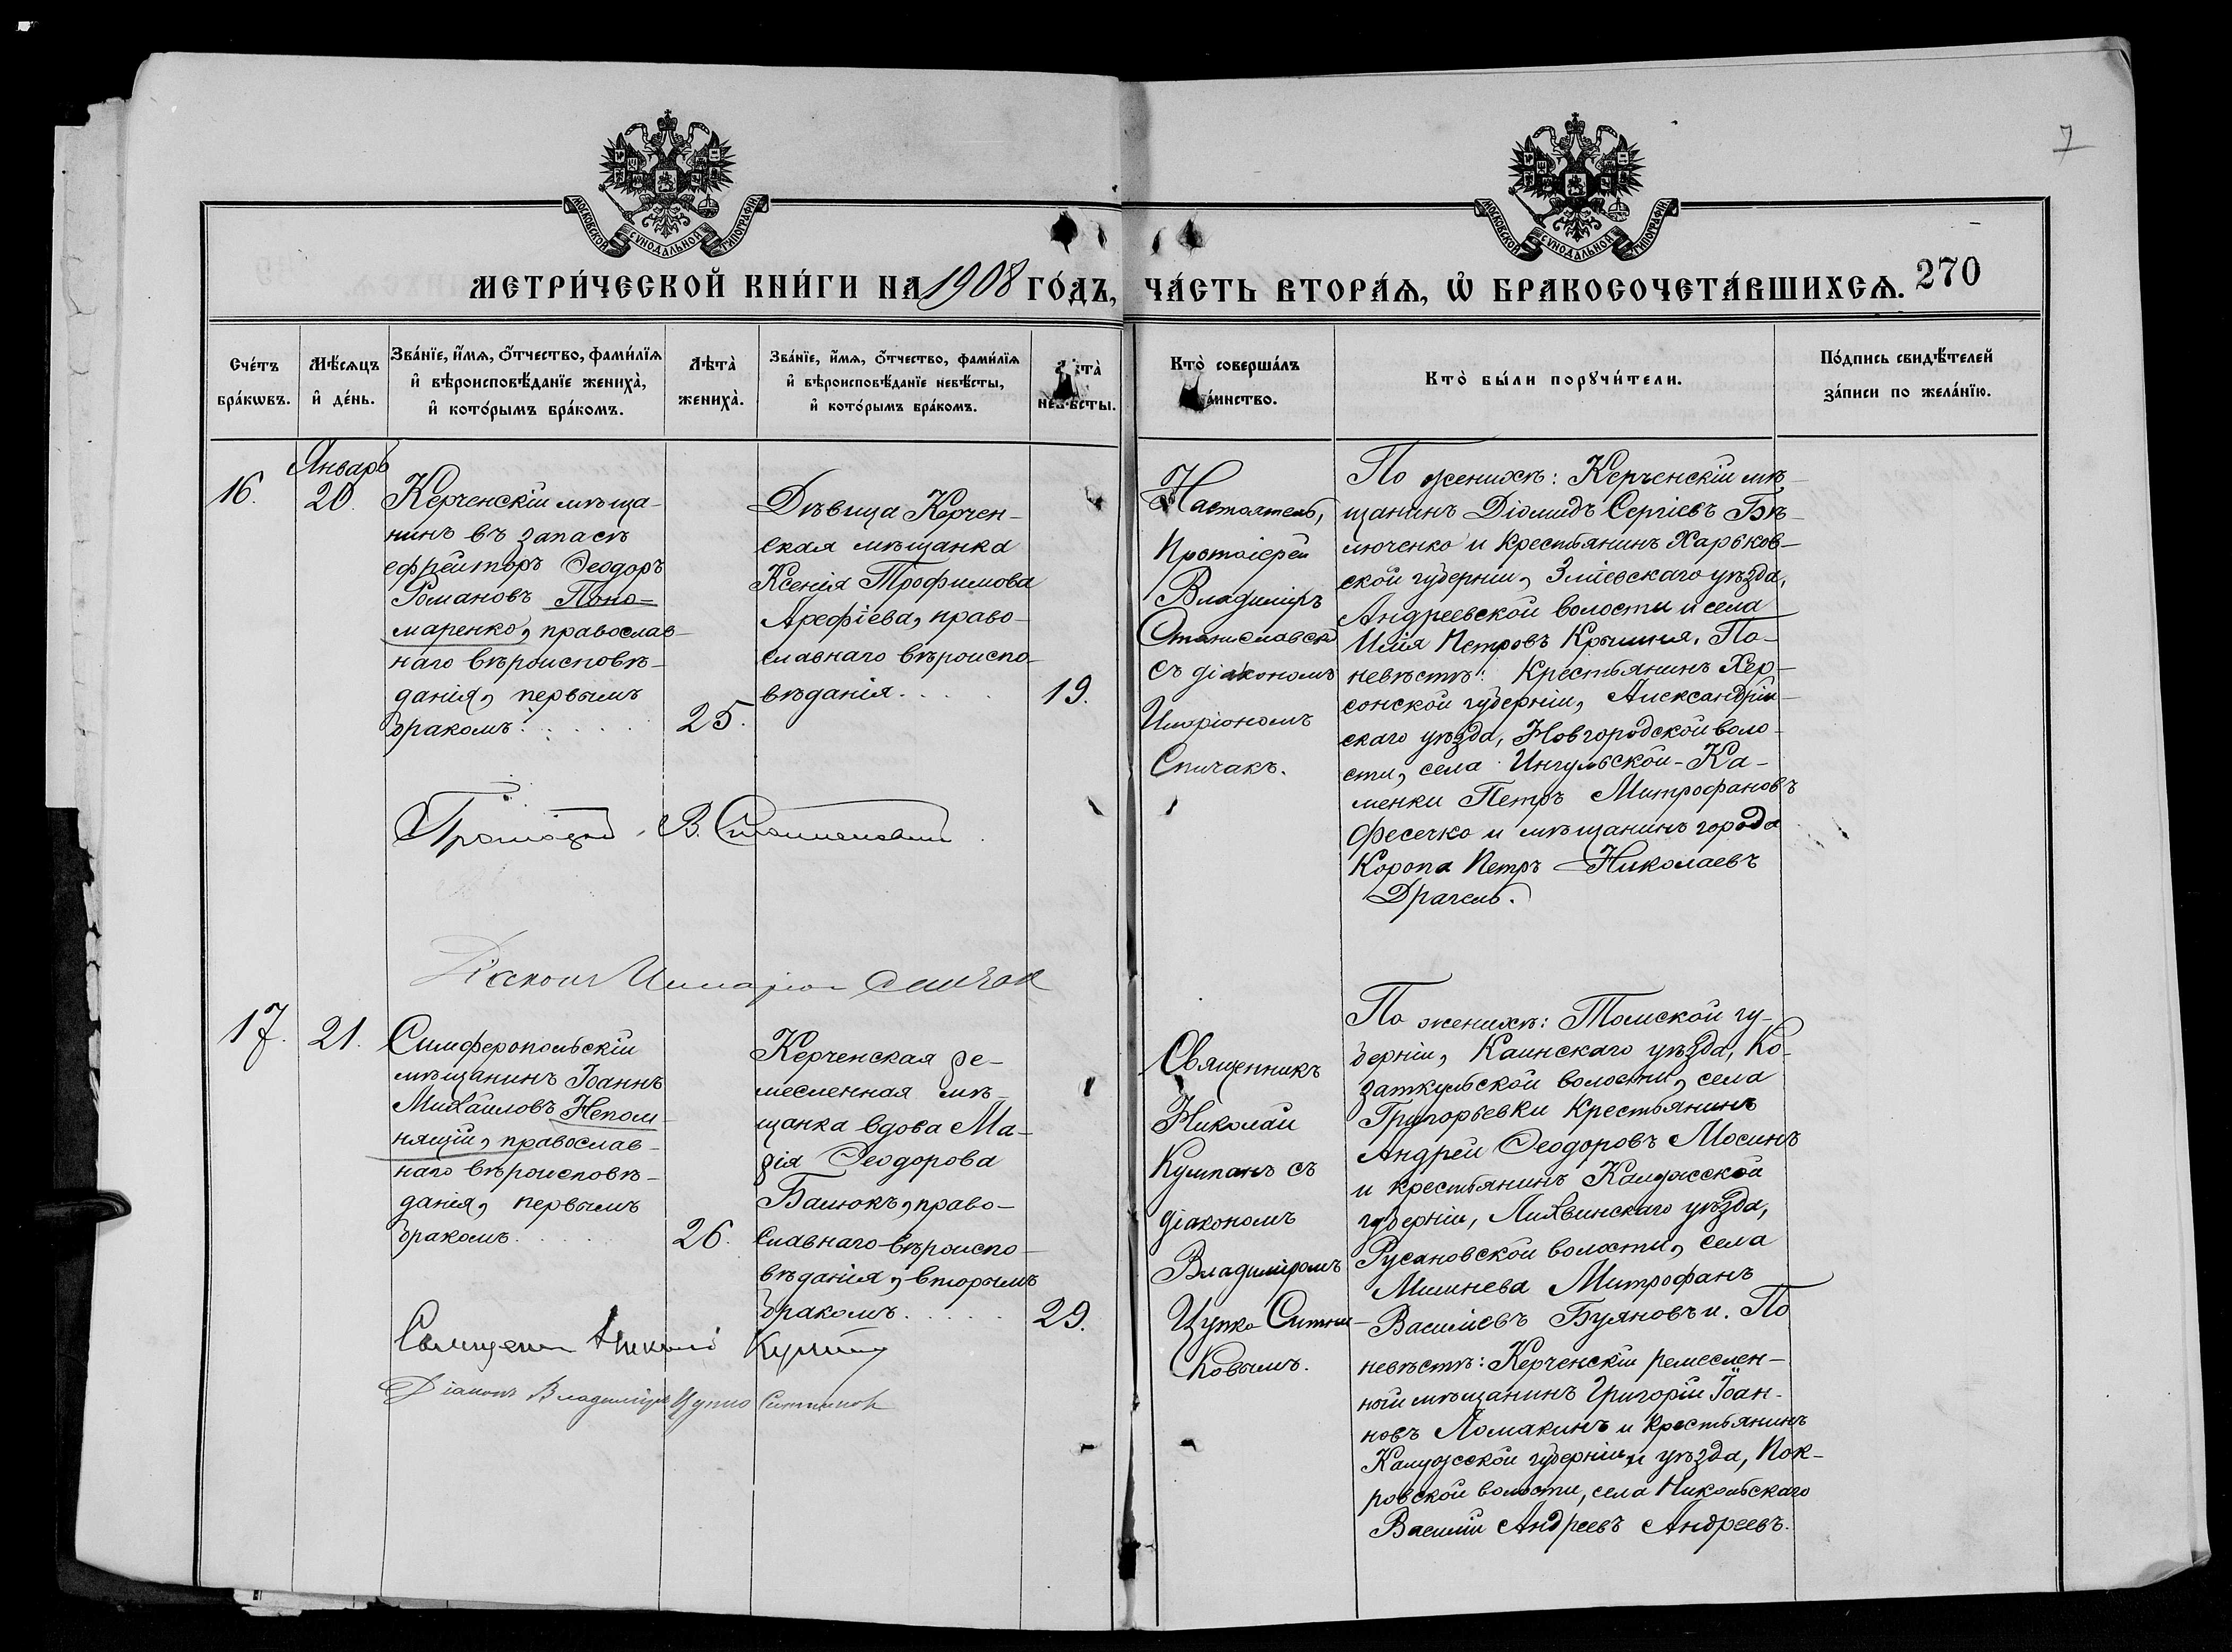 7
МОСКОВСКОЙ СѴНОДАЛЬНОЙ ТИПОГРАФІИ
МОСКОВСКОЙ СѴНОДАЛЬНОЙ ТИПОГРАФІИ
МЕТРИ́ЧЕСКОЙ КНИ́ГИ НА 1908 ГО́ДЪ,
ЧА́СТЬ ВТОРА́Ѧ, Ѡ҆ БРАКОСОЧЕТА́ВШИХСѦ. 270
Сче́тъ
бра́кѡвъ.
Мѣ́сѧцъ
и҆ де́нь.
Зва́нїе, и҆́мѧ, ѻ҆́тчество, фами́лїѧ
и҆ вѣроисповѣ́данїе жениха̀,
и҆ кото́рымъ бра́комъ.
Лѣта̀
жениха̀.
Зва́нїе, и҆́мѧ, ѻ҆́тчество, фами́лїѧ
и҆ вѣроисповѣ́данїе невѣ́сты,
и҆ кото́рымъ бра́комъ.
Лѣта̀
невѣ́сты.
Кто̀ соверша́лъ
та́инство.
Кто̀ бы́ли порꙋчи́тели.
По́дпись свидѣ́телей
за́писи по жела́нїю.
16.
Январь
20.
Керченскій мѣща-
нинъ въ запасѣ
ефрейторъ Ѳеодоръ
Романовъ Поно-
маренко, православ-
наго вѣроисповѣ-
данія, первымъ
бракомъ.
25.
Дѣвица Керчен-
ская мѣщанка
Ксенія Трофимова
Арефіева, право-
славнаго вѣроиспо-
вѣданія.
19.
Настоятель,
Протоіерей
Владиміръ
Станиславск
съ діакономъ
Иларіономъ
Спичакъ.
По женихѣ: Керченскій мѣ-
щанинъ Діомидъ Сергіевъ Бѣ-
люченко и крестьянинъ Харьков-
ской губерніи, Зміевскаго уѣзда,
Андреевской волости и села
Илія Петровъ Крышня. По
невѣстѣ: Крестьянинъ Хер-
сонской губерніи, Александрій-
скаго уѣзда, Новгородской воло-
сти, села Ингульской-Ка-
менки Петръ Митрофановъ
Фесечко и мѣщанинъ города
Коропа Петръ Николаевъ
Драгель.
Протоіерей В. Станиславскій
Діаконъ Иларіон Спичак
17.
21.
Симферопольскій
мѣщанинъ Іоаннъ
Михаиловъ Непом-
нящій, православ-
наго вѣроисповѣ-
данія, первымъ
бракомъ.
26.
Керченская ре-
месленная мѣ-
щанка вдова Ма-
рія Ѳеодорова
Башокъ, право-
славнаго вѣроиспо-
вѣданія, вторымъ
бракомъ.
29.
Священникъ
Николай
Кумпанъ съ
діакономъ
Владиміромъ
Цупко Ситни-
ковымъ.
По женихѣ: Томской гу-
берніи, Каинскаго уѣзда, Ко-
заткульской волости, села
Григорьевки крестьянинъ
Андрей Ѳеодоровъ Мосинъ
и крестьянинъ Калужской
губерніи, Лихвинскаго уѣзда,
Русановской волости, села
Мишнева Митрофанъ
Василіевъ Буяновъ и. По
невѣстѣ: Керченскій ремеслен-
ный мѣщанинъ Григорій Іоан-
новъ Ломакинъ и крестьянинъ
Калужской губерніи и уѣзда, Пок-
ровской волости, села Никольскаго
Василій Андреевъ Андреевъ.
Священн Николай
Діаконъ Владиміръ Цупко Ситников